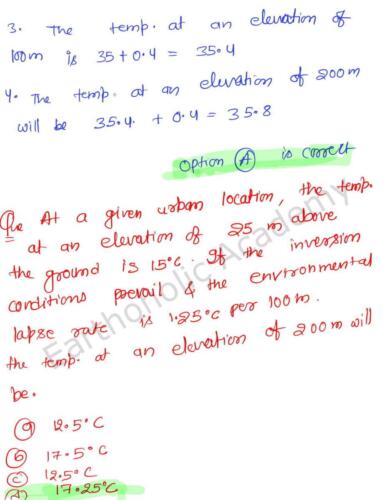 3. The temp. at an elevation of
100m is 35 + 0.4 = 35.4
4. The temp. at an elevation of 200m
will be 35.4. + 0.4 = 35.8
Option (A) is correct
Que At a given urban location, the temp.
at an elevation of 25 m above
the ground is 15°C. If the inversion
conditions prevail & the environmental
lapse rate is 1.25°C per 100m.
the temp. at an elevation of 200m will
be.
(a) 12.5°C
(b) 17.5°C
(c) 12.5°C
(d) 17.25°C
Eartholic Academy